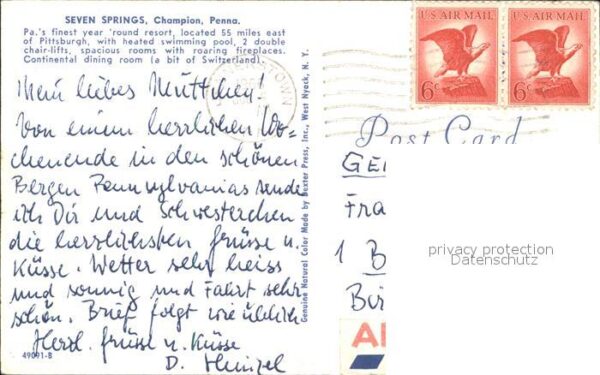 SEVEN SPRINGS, Champion, Penna.
Pa.'s finest year 'round resort, located 55 miles east
of Pittsburgh, with heated swimming pool, 2 double
chair-lifts, spacious rooms with roaring fireplaces.
Continental dining room (a bit of Switzerland).
Mein liebes Muttchen!
Von einem herrlichen Wo-
chenende in den schönen
Bergen Pennsylvanias sende
ich Dir und Schwesterchen
die herzlichsten Grüsse u.
Küsse. Wetter sehr heiss
und sonnig und Fahrt sehr
schön. Brief folgt wie üblich.
Herzl. Grüsse u. Küsse
D. Heinzel
49091-B
Genuine Natural Color Made by Dexter Press, Inc., West Nyack, N. Y.
TOWN
U.S. AIR MAIL
6c
U.S. AIR MAIL
6c
Post Card
GE
Fra
1 B
Bir
privacy protection
Datenschutz
AI